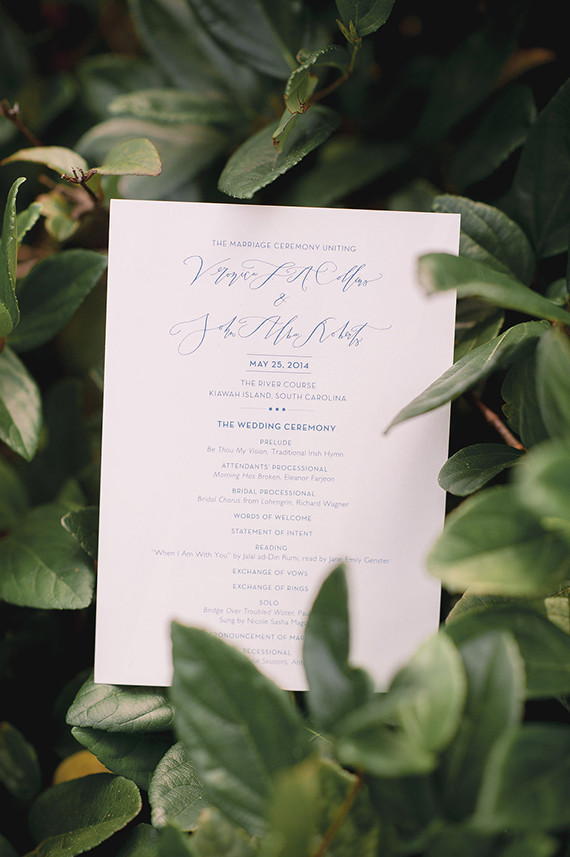 THE MARRIAGE CEREMONY UNITING
Veronica Collins
&
John Alba Roberts
MAY 25, 2014
THE RIVER COURSE
KIAWAH ISLAND, SOUTH CAROLINA
THE WEDDING CEREMONY
PRELUDE
Be Thou My Vision, Traditional Irish Hymn
ATTENDANTS' PROCESSIONAL
Morning Has Broken, Eleanor Farjeon
BRIDAL PROCESSIONAL
Bridal Chorus from Lohengrin, Richard Wagner
WORDS OF WELCOME
STATEMENT OF INTENT
READING
"When I Am With You" by Jalal ad-Din Rumi, read by Jane Emily Genster
EXCHANGE OF VOWS
EXCHANGE OF RINGS
SOLO
Bridge Over Troubled Water,
Sung by Nicole Sasha
OF